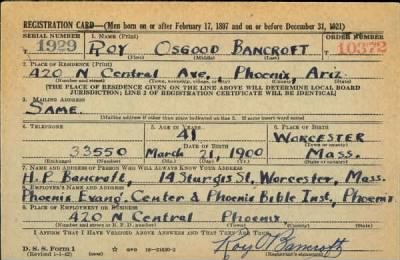 REGISTRATION CARD—(Men born on or after February 17, 1897 and on or before December 31, 1921)
SERIAL NUMBER 1. NAME (Print) ORDER NUMBER
1929 Roy Osgood Bancroft 10372
(First) (Middle) (Last)
2. PLACE OF RESIDENCE (Print)
420 N Central Ave, Phoenix, Ariz.
(Number and street) (Town, township, village, or city) (County) (State)
[THE PLACE OF RESIDENCE GIVEN ON THE LINE ABOVE WILL DETERMINE LOCAL BOARD
JURISDICTION; LINE 2 OF REGISTRATION CERTIFICATE WILL BE IDENTICAL]
3. MAILING ADDRESS
Same.
[Mailing address if other than place indicated on line 2. If same insert word same]
4. TELEPHONE 5. AGE IN YEARS 6. PLACE OF BIRTH
41 Worcester
DATE OF BIRTH (Town or county)
33550 March 21, 1900 Mass.
(Exchange) (Number) (Mo.) (Day) (Yr.) (State or country)
7. NAME AND ADDRESS OF PERSON WHO WILL ALWAYS KNOW YOUR ADDRESS
H.P. Bancroft, 14 Sturgis St, Worcester, Mass.
8. EMPLOYER'S NAME AND ADDRESS
Phoenix Evang. Center & Phoenix Bible Inst., Phoenix
9. PLACE OF EMPLOYMENT OR BUSINESS
420 N Central Phoenix,
(Number and street or R. F. D. number) (Town) (County) (State)
I AFFIRM THAT I HAVE VERIFIED ABOVE ANSWERS AND THAT THEY ARE TRUE.
D. S. S. Form 1
(Revised 1-1-42) (over) Roy O Bancroft